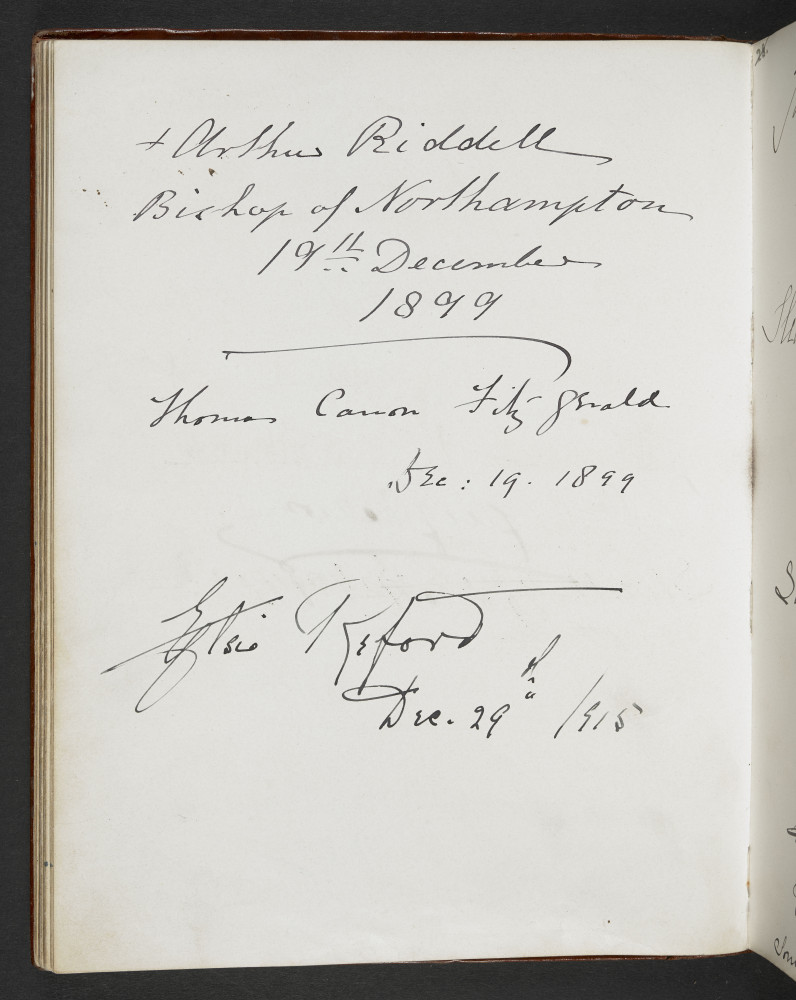 + Arthur Riddell
Bishop of Northampton
19th December
1899
Thomas Canon Fitzgerald
Dec: 19. 1899
Elsie Reford
Dec. 29th 1915
24.